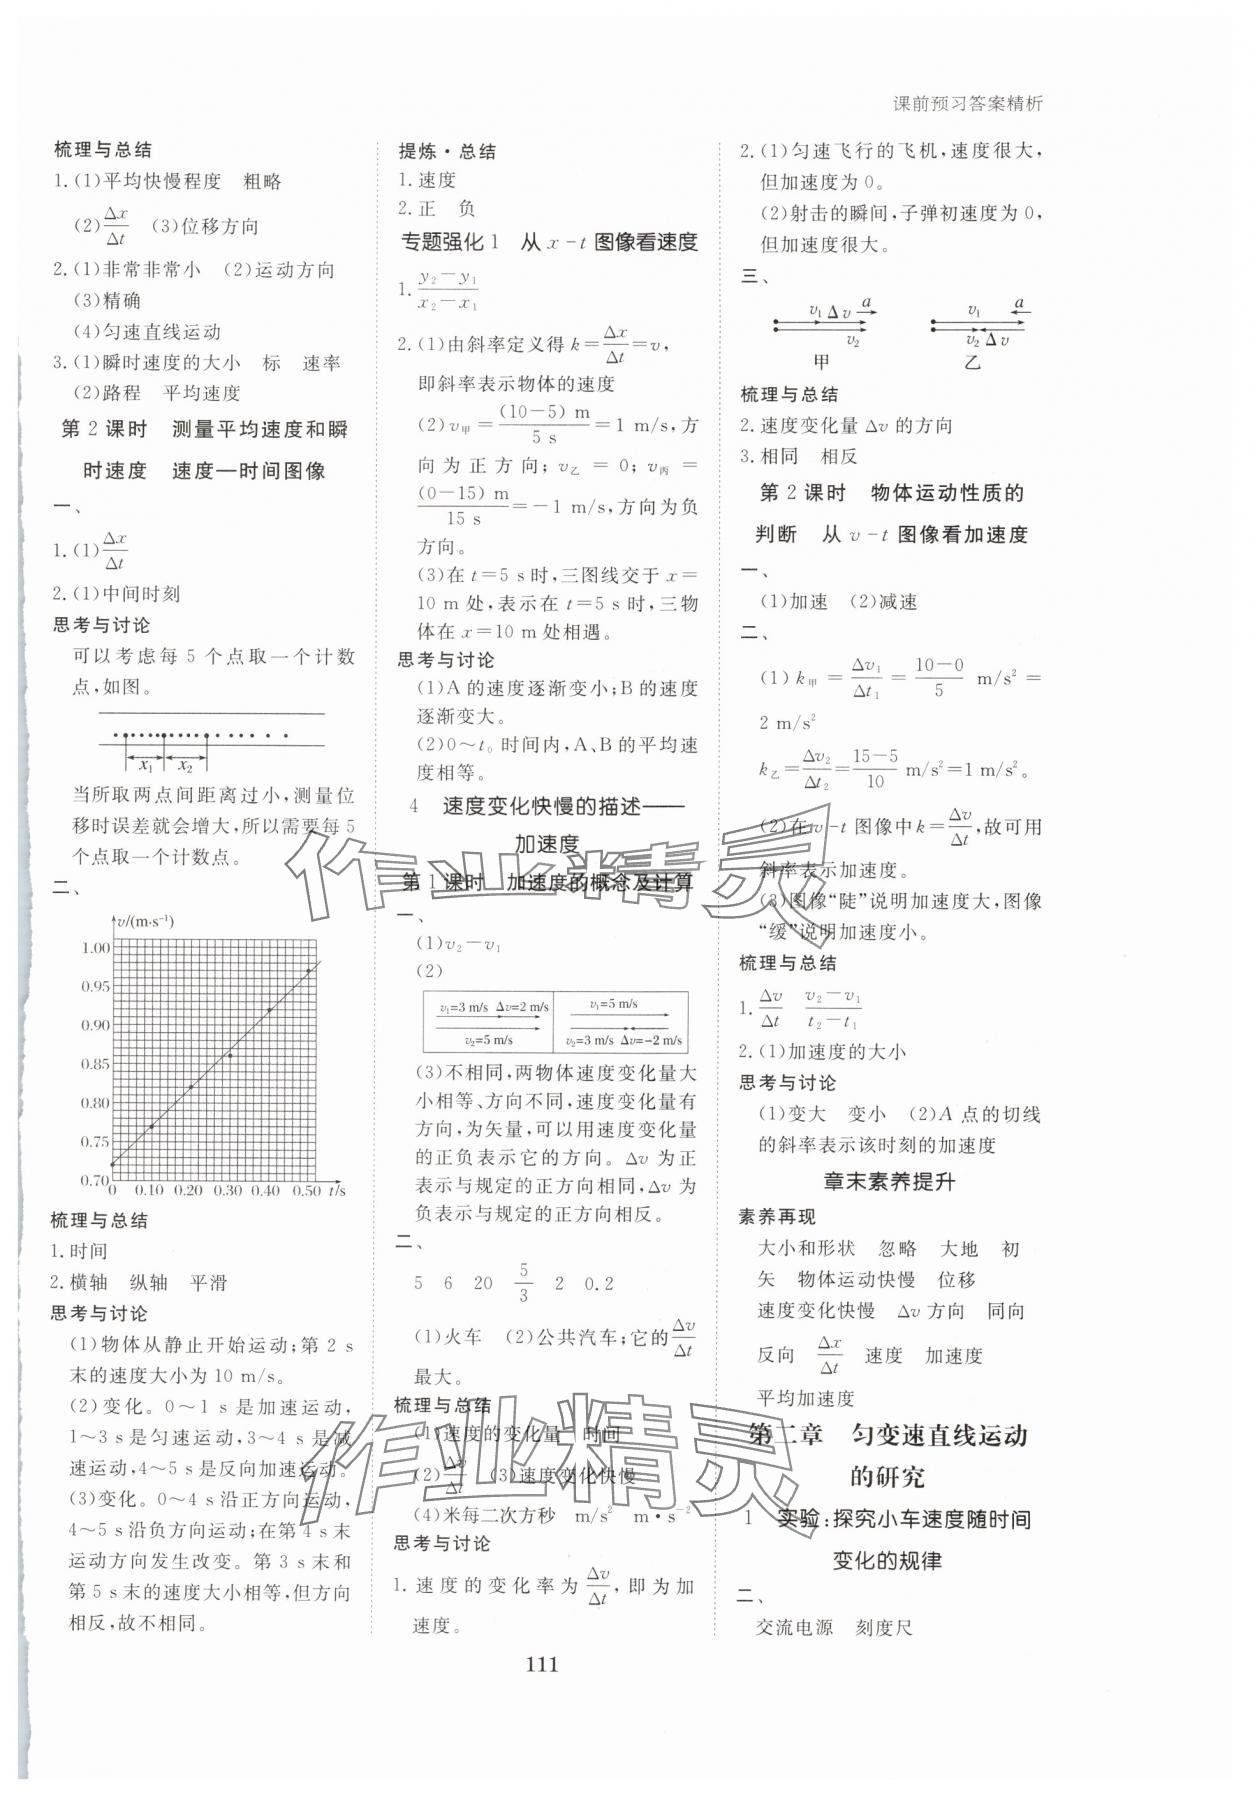 课前预习答案精析
梳理与总结
1.(1)平均快慢程度　粗略
(2)Δx/Δt　(3)位移方向
2.(1)非常非常小　(2)运动方向
(3)精确
(4)匀速直线运动
3.(1)瞬时速度的大小　标　速率
(2)路程　平均速度
第2课时　测量平均速度和瞬
时速度　速度—时间图像
一、
1.(1)Δx/Δt
2.(1)中间时刻
思考与讨论
可以考虑每5个点取一个计数
点,如图。
x₁ x₂
当所取两点间距离过小,测量位
移时误差就会增大,所以需要每5
个点取一个计数点。
二、
v/(m·s⁻¹)
1.00
0.95
0.90
0.85
0.80
0.75
0.70
0 0.10 0.20 0.30 0.40 0.50 t/s
梳理与总结
1.时间
2.横轴　纵轴　平滑
思考与讨论
(1)物体从静止开始运动;第2 s
末的速度大小为10 m/s。
(2)变化。0～1 s是加速运动,
1～3 s是匀速运动,3～4 s是减
速运动,4～5 s是反向加速运动。
(3)变化。0～4 s沿正方向运动,
4～5 s沿负方向运动;在第4 s末
运动方向发生改变。第3 s末和
第5 s末的速度大小相等,但方向
相反,故不相同。
提炼·总结
1.速度
2.正　负
专题强化1　从x-t图像看速度
1.(y₂-y₁)/(x₂-x₁)
2.(1)由斜率定义得k=Δx/Δt=v,
即斜率表示物体的速度
(2)v甲=(10-5) m/5 s=1 m/s,方
向为正方向;v乙=0;v丙=
(0-15) m/15 s=-1 m/s,方向为负
方向。
(3)在t=5 s时,三图线交于x=
10 m处,表示在t=5 s时,三物
体在x=10 m处相遇。
思考与讨论
(1)A的速度逐渐变小;B的速度
逐渐变大。
(2)0～t₀时间内,A、B的平均速
度相等。
4　速度变化快慢的描述——
加速度
第1课时　加速度的概念及计算
一、
(1)v₂-v₁
(2)
v₁=3 m/s Δv=2 m/s　v₁=5 m/s
v₂=5 m/s　v₂=3 m/s Δv=-2 m/s
(3)不相同,两物体速度变化量大
小相等、方向不同,速度变化量有
方向,为矢量,可以用速度变化量
的正负表示它的方向。Δv为正
表示与规定的正方向相同,Δv为
负表示与规定的正方向相反。
二、
5　6　20　5/3　2　0.2
(1)火车　(2)公共汽车;它的Δv/Δt
最大。
梳理与总结
(1)速度的变化量　时间
(2)Δv/Δt　(3)速度变化快慢
(4)米每二次方秒　m/s²　m·s⁻²
思考与讨论
1.速度的变化率为Δv/Δt,即为加
速度。
2.(1)匀速飞行的飞机,速度很大,
但加速度为0。
(2)射击的瞬间,子弹初速度为0,
但加速度很大。
三、
v₁ Δv a　v₁ a
v₂　v₂ Δv
甲　乙
梳理与总结
2.速度变化量Δv的方向
3.相同　相反
第2课时　物体运动性质的
判断　从v-t图像看加速度
一、
(1)加速　(2)减速
二、
(1)k甲=Δv₁/Δt₁=(10-0)/5 m/s²=
2 m/s²
k乙=Δv₂/Δt₂=(15-5)/10 m/s²=1 m/s²。
(2)在v-t图像中k=Δv/Δt,故可用
斜率表示加速度。
(3)图像“陡”说明加速度大,图像
“缓”说明加速度小。
梳理与总结
1.Δv/Δt　(v₂-v₁)/(t₂-t₁)
2.(1)加速度的大小
思考与讨论
(1)变大　变小　(2)A点的切线
的斜率表示该时刻的加速度
章末素养提升
素养再现
大小和形状　忽略　大地　初
矢　物体运动快慢　位移
速度变化快慢　Δv方向　同向
反向　Δx/Δt　速度　加速度
平均加速度
第二章　匀变速直线运动
的研究
1　实验:探究小车速度随时间
变化的规律
二、
交流电源　刻度尺
111
作业精灵
作业精灵